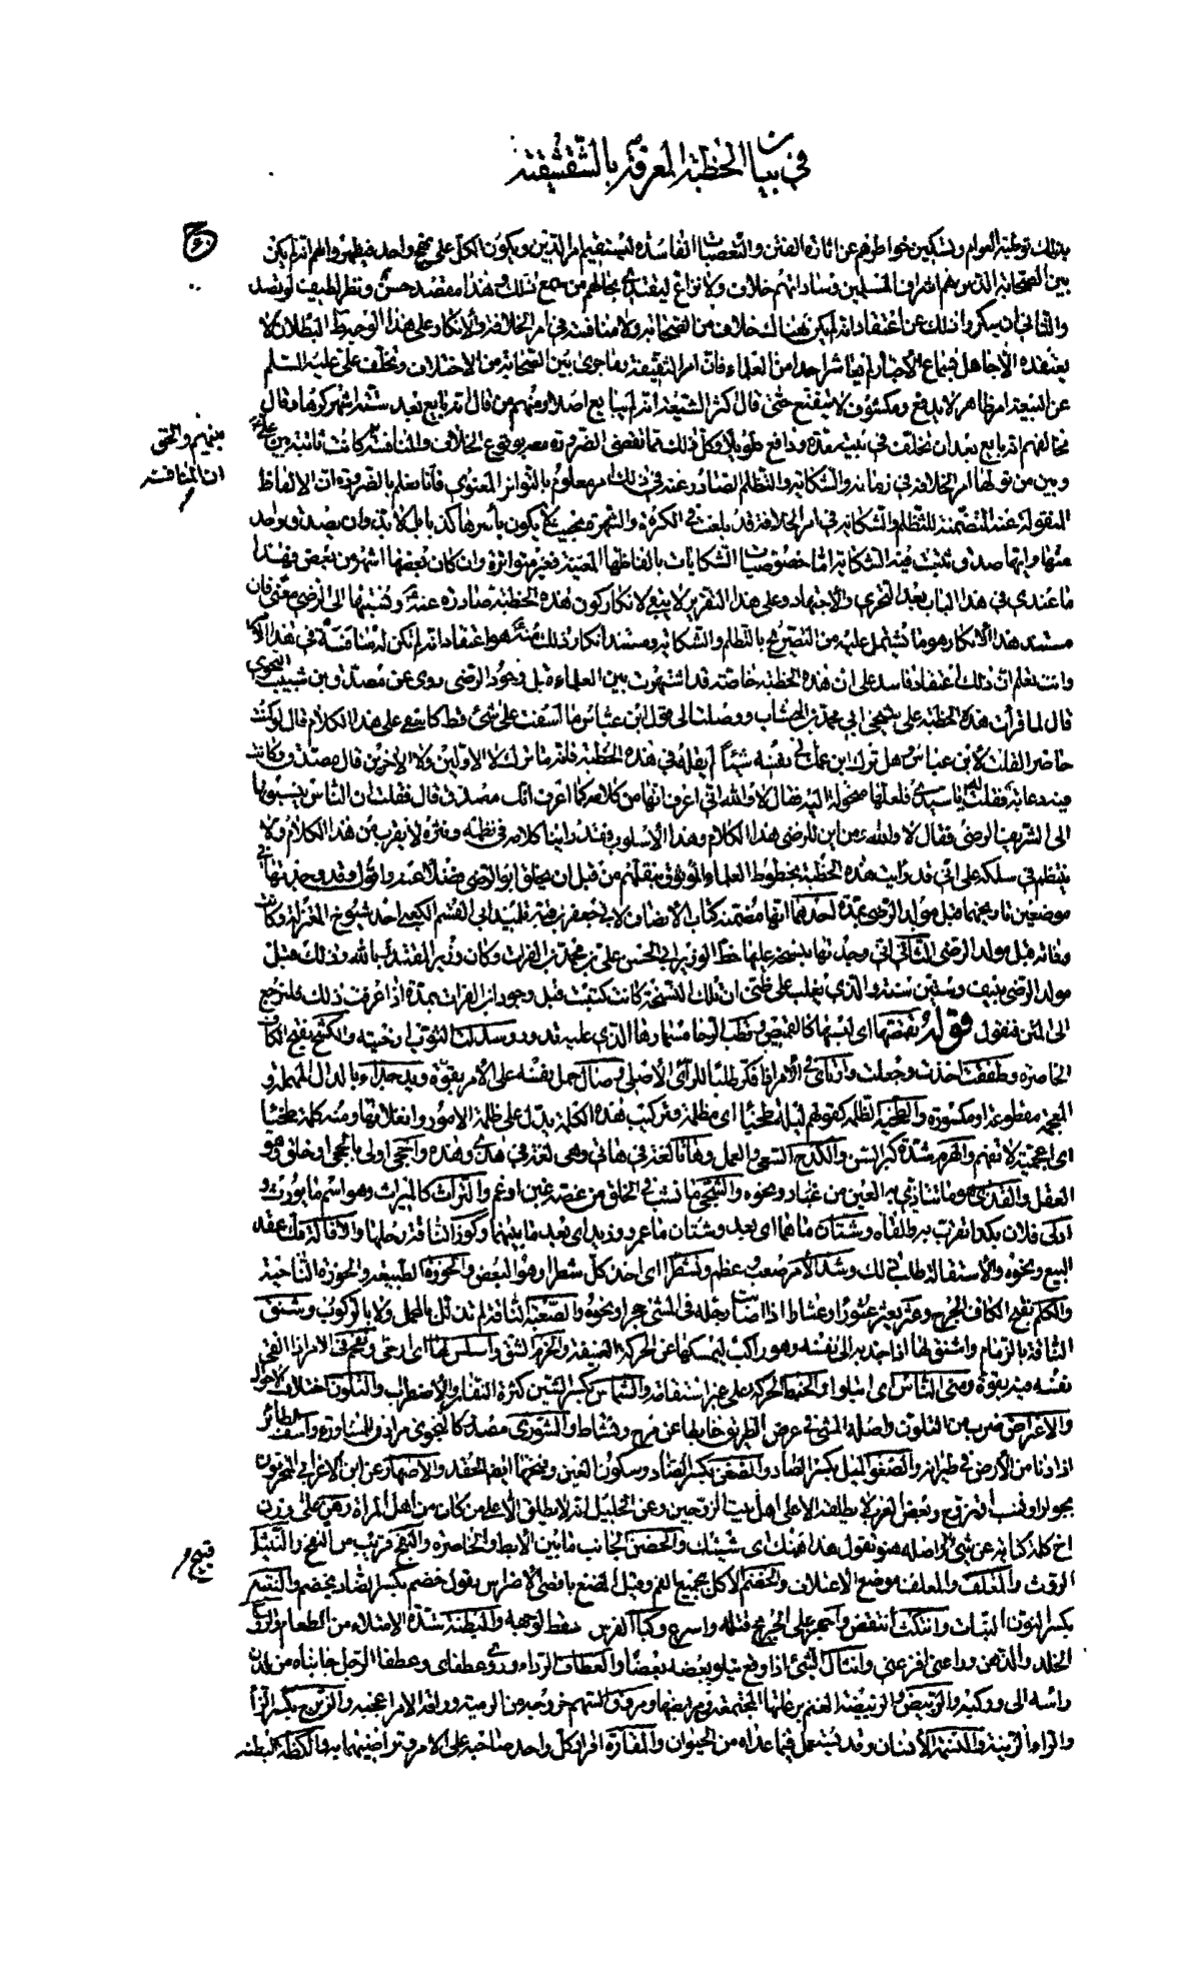 في بيان الخطبة المعروفة بالشقشقية
بذلك توطية العوام وتسكين خواطرهم عن اثارة الفتن والتعصبات الفاسدة ليستقيم امر الدين ويكون الكل على نهج واحد فيظهروا لهم انه لم يكن
بين الصحابة الذين هم اشراف المسلمين وساداتهم خلاف ولا نزاع ليقتدي بحالهم من سمع ذلك وهذا مقصد حسن ونظر لطيف لو قصد
والثاني ان ينكروا ذلك عن اعتقاد انه لم يكن هناك خلاف من الصحابة ولا منافسة في امر الخلافة والانكار على هذا الوجه ظ البطلان لا
يعتقده الا جاهل بسماع الاخبار لم يعاشر احدا من العلماء فان امر السقيفة وما جرى بين الصحابة من الاختلاف وتخلف علي عليه السلم
عن البيعة امر ظاهر لا يدفع ومكشوف لا يتقنع حتى قال اكثر الشيعة انه لم يبايع اصلا ومنهم من قال انه بايع بعد ستة اشهر كرها وقال
مخالفهم انه بايع بعد ان تخلف في بيته مدة ودافع طويلا وكل ذلك مما تقضى الضرورة معه بوقوع الخلاف والمنافسة كانت ثابتة بين علي
بينهم والحق
ان المنافسة
وبين من تولى امر الخلافة في زمانه والشكاية والتظلم الصادر عنه في ذلك امر معلوم بالتواتر المعنوي فانا نعلم بالضرورة ان الالفاظ
المنقولة عنه المتضمنة للتظلم والشكاية في امر الخلافة قد بلغت في الكثرة والشهرة بحيث لا يكون باسرها كذبا بل لا بد وان يصدق واحد
منها وايها صدق ثبتت فيه الشكاية اما خصوصيات الشكايات بالفاظها المعينة فغير متواترة وان كان بعضها اشهر من بعض فهذا
ما عندي في هذا الباب بعد التحري والاجتهاد وعلى هذا التقرير لا يبقى لانكار كون هذه الخطبة صادرة عنه ونسبتها الى الرضي معنى فان
مستند هذا الانكار هو ما يشتمل عليه من التصريح بالتظلم والشكاية ومستند انكار ذلك منه هو اعتقاد انه لم تكن له منافسة في هذا الامر
وانت تعلم ان ذلك اعتقاد فاسد على ان هذه الخطبة خاصة قد اشتهرت بين العلماء قبل وجود الرضي روى عن مصدق بن شبيب النحوي
قال لما قرات هذه الخطبة على شيخي ابي محمد بن الخشاب ووصلت الى قول ابن عباس ما اسفت على شيء قط كاسفي على هذا الكلام قال لو كنت
حاضرا لقلت لابن عباس وهل ترك ابن عمك في نفسه شيئا لم يقله في هذه الخطبة فانه ما ترك لا الاولين ولا الاخرين قال مصدق وكانت
فيه دعابة فقلت له يا سيدي فلعلها منحولة اليه فقال لا والله اني اعرف انها من كلامه كما اعرف انك مصدق قال فقلت ان الناس ينسبونها
الى الشريف الرضي فقال لا والله ومن اين للرضي هذا الكلام وهذا الاسلوب فقد راينا كلامه في نظمه ونثره لا يقرب من هذا الكلام ولا
ينتظم في سلكه على اني قد رايت هذه الخطبة بخطوط العلماء الموثوق بنقلهم من قبل ان يخلق ابو الرضي فضلا عنه واقول وقد وجدتها في
موضعين تاريخهما قبل مولد الرضي بمدة احدهما انها مضمنة كتاب الانصاف لابي جعفر بن قبة تلميذ ابي القسم الكعبي احد شيوخ المعتزلة وكانت
وفاته قبل مولد الرضي الثاني اني وجدتها بنسخة عليها خط الوزير ابي الحسن علي بن محمد بن الفرات وكان وزير المقتدر بالله وذلك قبل
مولد الرضي بنيف وستين سنة والذي يغلب على ظني ان تلك النسخة كانت كتبت قبل وجود ابن الفرات بمدة اذا عرفت ذلك فلنرجع
الى المتن فنقول قوله تقمصها اي لبسها كالقميص وقطب الرحا مسمارها الذي عليه تدور وسدلت الثوب ارخيته والكشح بفتح الكاف
الخاصرة وطفقت اخذت وجعلت وارتاى في الامر اذا فكر طلبا للراي الاصلح وصال حمل نفسه على الامر بقوة ويد جذاء بالدال المهملة و
المعجمة مقطوعة او مكسورة والطخية الظلمة كقولهم ليلة طخياء اي مظلمة وتركيب هذه الكلمة يدل على ظلمة الامور وانغلاقها ومنه كلمة طخياء
اي اعجمية لا تفهم والهرم شدة كبر السن والكدح السعي والعمل وهاتا لغة في هاتي وهي لغة في هذي وهذه واحجى اولى بالحجى اوخلق وهو
العقل والقذى هو ما يتاذى به العين من غبار ونحوه والشجى ما نشب في الحلق من غصة غبن او غم والتراث كالميراث وهو اسم ما يورث و
ادلى فلان بكذا تقرب به والقاه وشتان ما هما اي بعد وشتان ما عمرو وزيد اي بعد ما بينهما وكور الناقة رحلها والاقالة فك عقد
البيع ونحوه والاستقالة طلب ذلك وشد الامر صعب وعظم وتشطرا اي اخذ كل شطرا وهو البعض والحوزة الطبيعة والحوزة الناحية
والكلم بفتح الكاف الجرح وعثر يعثر عثورا وعثارا اذا اصاب رجله في المشي حجر او نحوه والصعبة الناقة لم تذلل بالمحمل ولا بالركوب وشنق
الناقة بالزمام واشنق لها اذا جذبه الى نفسه وهو راكب ليمسكها عن الحركة العنيفة والخرم الشق واسلس لها اي ارخى وتقحم في الامر اذا القى
نفسه فيه بقوة ومنى الناس اي ابتلوا والخبط الحركة على غير استقامة والشماس بكسر الشين كثرة النفار والاضطراب والتلون اختلاف الاحوال
والاعتراض ضرب من التلون واصله المشي في عرض الطريق خابطا عن فرح ونشاط والشورى مصدر كالنجوى مرادف للمشاورة واسف الطائر
اذا دنا من الارض في طيرانه والصغو الميل بكسر الصاد والضغن بكسر الضاد وسكون الغين وفتحهما ايضا الحقد والاصهار عن ابن الاعرابي المتحرمون
بجوار او نسب او تزوج وبعض العرب لا يطلقه الا على اهل بيت الزوجين وعن الخليل انه لا يطلق الا على من كان من اهل المراة وهن على وزن
اخ كلمة كناية عن شيء واصله هنو تقول هذا هنك اي شيئك والحضن الجانب ما بين الابط والخاصرة والنفج قريب من النفخ والنثيل
قبيح
الروث والمعتلف والمعلف موضع الاعتلاف والخضم الاكل بجميع الفم وقيل المضغ باقصى الاضراس يقول خضم بكسر الضاد يخضم والنبتة
بكسر النون النبات وانتكث انتقض واجهز على الجريح قتله واسرع وكبا الفرس سقط لوجهه والبطنة شدة الامتلاء من الطعام وراق
الخلد والذهن وراعني افزعني وانثال الشيء اذا وقع يتلو بعضه بعضا والعطاف الرداء وروى عطفاي وعطفا الرجل جانباه من لدن
راسه الى وركيه والربيض والربيضة الغنم برعاتها المجتمعة في مرابضها ومروق السهم خروجه عن الرمية وراقه الامر اعجبه والزبرج بكسر الزا
والراء الزينة والنسمة الانسان وقد يستعمل فيما عداه من الحيوان والمقارة اقرار كل واحد صاحبه على الامر وتراضيهما به والكظة البطنة